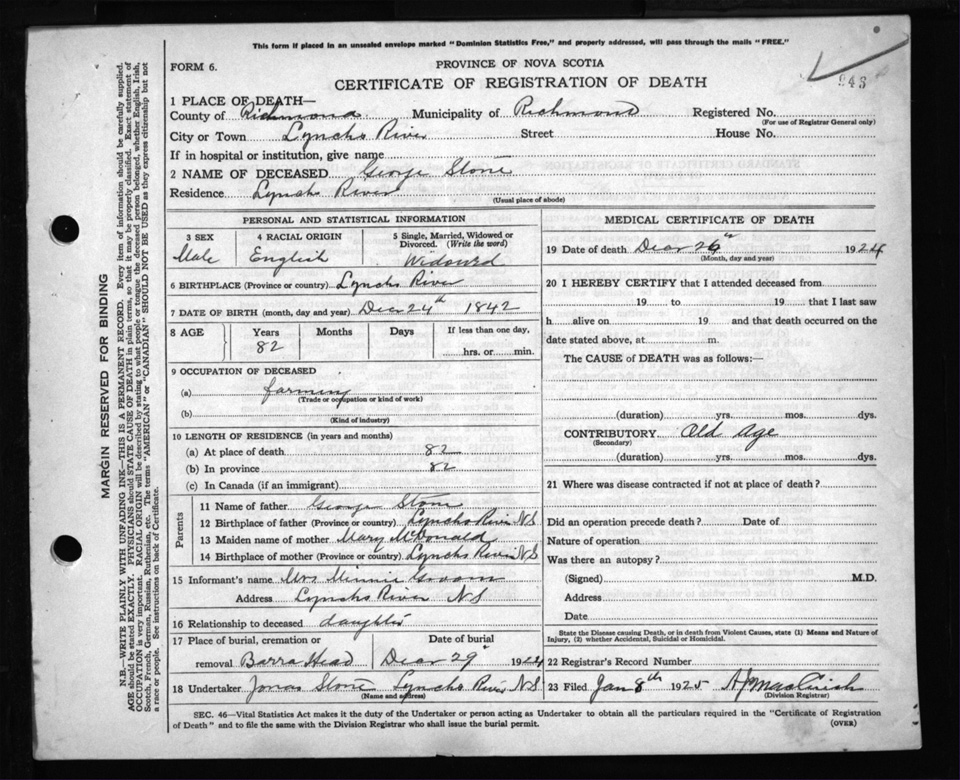 This form if placed in an unsealed envelope marked "Dominion Statistics Free," and properly addressed, will pass through the mails "FREE."
FORM 6.
PROVINCE OF NOVA SCOTIA
CERTIFICATE OF REGISTRATION OF DEATH
943
1 PLACE OF DEATH—
County of Richmond Municipality of Richmond Registered No.
(For use of Registrar General only)
City or Town Lynchs River Street House No.
If in hospital or institution, give name
2 NAME OF DECEASED George Stone
Residence Lynchs River
(Usual place of abode)
PERSONAL AND STATISTICAL INFORMATION
3 SEX 4 RACIAL ORIGIN 5 Single, Married, Widowed or Divorced. (Write the word)
Male English Widowed
6 BIRTHPLACE (Province or country) Lynchs River
7 DATE OF BIRTH (month, day and year) Decr 24th 1842
8 AGE Years Months Days If less than one day,
82 hrs. or min.
9 OCCUPATION OF DECEASED
(a) farming
(Trade or occupation or kind of work)
(b)
(Kind of industry)
10 LENGTH OF RESIDENCE (in years and months)
(a) At place of death 82
(b) In province 82
(c) In Canada (if an immigrant)
Parents
11 Name of father George Stone
12 Birthplace of father (Province or country) Lynchs River NS
13 Maiden name of mother Mary McDonald
14 Birthplace of mother (Province or country) Lynchs River NS
15 Informant's name Mrs Minnie
Address Lynchs River NS
16 Relationship to deceased daughter
17 Place of burial, cremation or Date of burial
removal Barra Head Decr 29th 1924
18 Undertaker Jonas Stone Lynchs River NS
(Name and address)
MEDICAL CERTIFICATE OF DEATH
19 Date of death Decr 26th 1924
(Month, day and year)
20 I HEREBY CERTIFY that I attended deceased from
19 to 19 that I last saw
h alive on 19 and that death occurred on the
date stated above, at m.
The CAUSE of DEATH was as follows:—
(duration) yrs. mos. dys.
CONTRIBUTORY Old Age
(Secondary)
(duration) yrs. mos. dys.
21 Where was disease contracted if not at place of death?
Did an operation precede death? Date of
Nature of operation
Was there an autopsy?
(Signed) M.D.
Address
Date
State the Disease causing Death, or in death from Violent Causes, state (1) Means and Nature of
Injury, (2) whether Accidental, Suicidal or Homicidal.
22 Registrar's Record Number
23 Filed Jany 8th 1925
(Division Registrar)
SEC. 46—Vital Statistics Act makes it the duty of the Undertaker or person acting as Undertaker to obtain all the particulars required in the "Certificate of Registration
of Death" and to file the same with the Division Registrar who shall issue the burial permit.
(OVER)
MARGIN RESERVED FOR BINDING
N.B.—WRITE PLAINLY WITH UNFADING INK—THIS IS A PERMANENT RECORD. Every item of information should be carefully supplied.
AGE should be stated EXACTLY. PHYSICIANS should STATE CAUSE OF DEATH in plain terms, so that it may be properly classified. Exact statement of
OCCUPATION is very important. RACIAL ORIGIN will be described by stating to what people or tongue the deceased person belonged, whether English, Irish,
Scotch, French, German, Russian, Ruthenian, etc. The terms "AMERICAN" or "CANADIAN" SHOULD NOT BE USED as they express citizenship but not
a race or people. See instructions on back of Certificate.